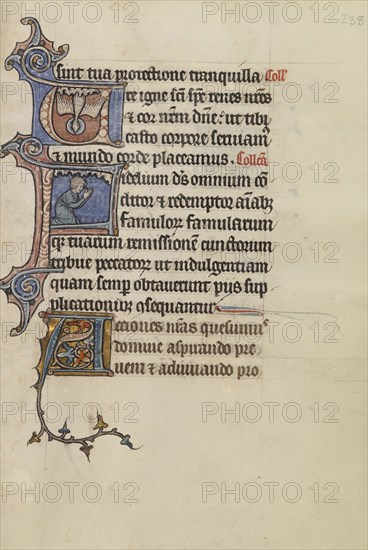 238
sint tua protectione tranquilla Coll'
Ure igne sci sps renes nros
& cor nrm dne: ut tibi
casto corpore seruiam
& mundo corde placeamus. Collca
Fidelium ds omnium co
ditor & redemptor aiab;
famulor famularum
q; tuarum remissione cunctorum
tribue peccator ut indulgentiam
quam semp obtauerunt pijs sup
plicationib; gsequantur
Actiones nras quesumus
domine aspirando pre
ueni & adiuuando pro
PHOTO 12